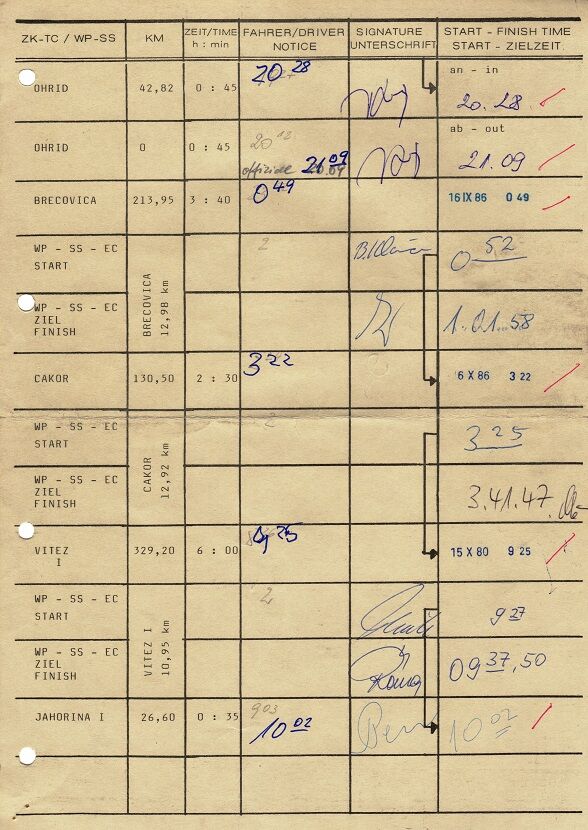 ZK-TC / WP-SS KM ZEIT/TIME FAHRER/DRIVER SIGNATURE START - FINISH TIME
h : min NOTICE UNTERSCHRIFT START - ZIELZEIT.
an - in
OHRID 42,82 0 : 45 20 28 20. 28.
ab - out
OHRID 0 0 : 45 20 12 21 09 21.09
offiziell 20.09
BRECOVICA 213,95 3 : 40 0 49 16 IX 86 0 49
WP - SS - EC 2 0 52
START
BRECOVICA
12,98 km
WP - SS - EC 1.01.58
ZIEL
FINISH
CAKOR 130,50 2 : 30 3 22 6 X 86 3 22
WP - SS - EC 2 3 25
START
CAKOR
12,92 km
WP - SS - EC 3.41.47.
ZIEL
FINISH
VITEZ 329,20 6 : 00 9 25 15 X 80 9 25
I
WP - SS - EC 2 9 27
START
VITEZ I
10,95 km
WP - SS - EC 09 37,50
ZIEL
FINISH
JAHORINA I 26,60 0 : 35 903 10 02 10 02